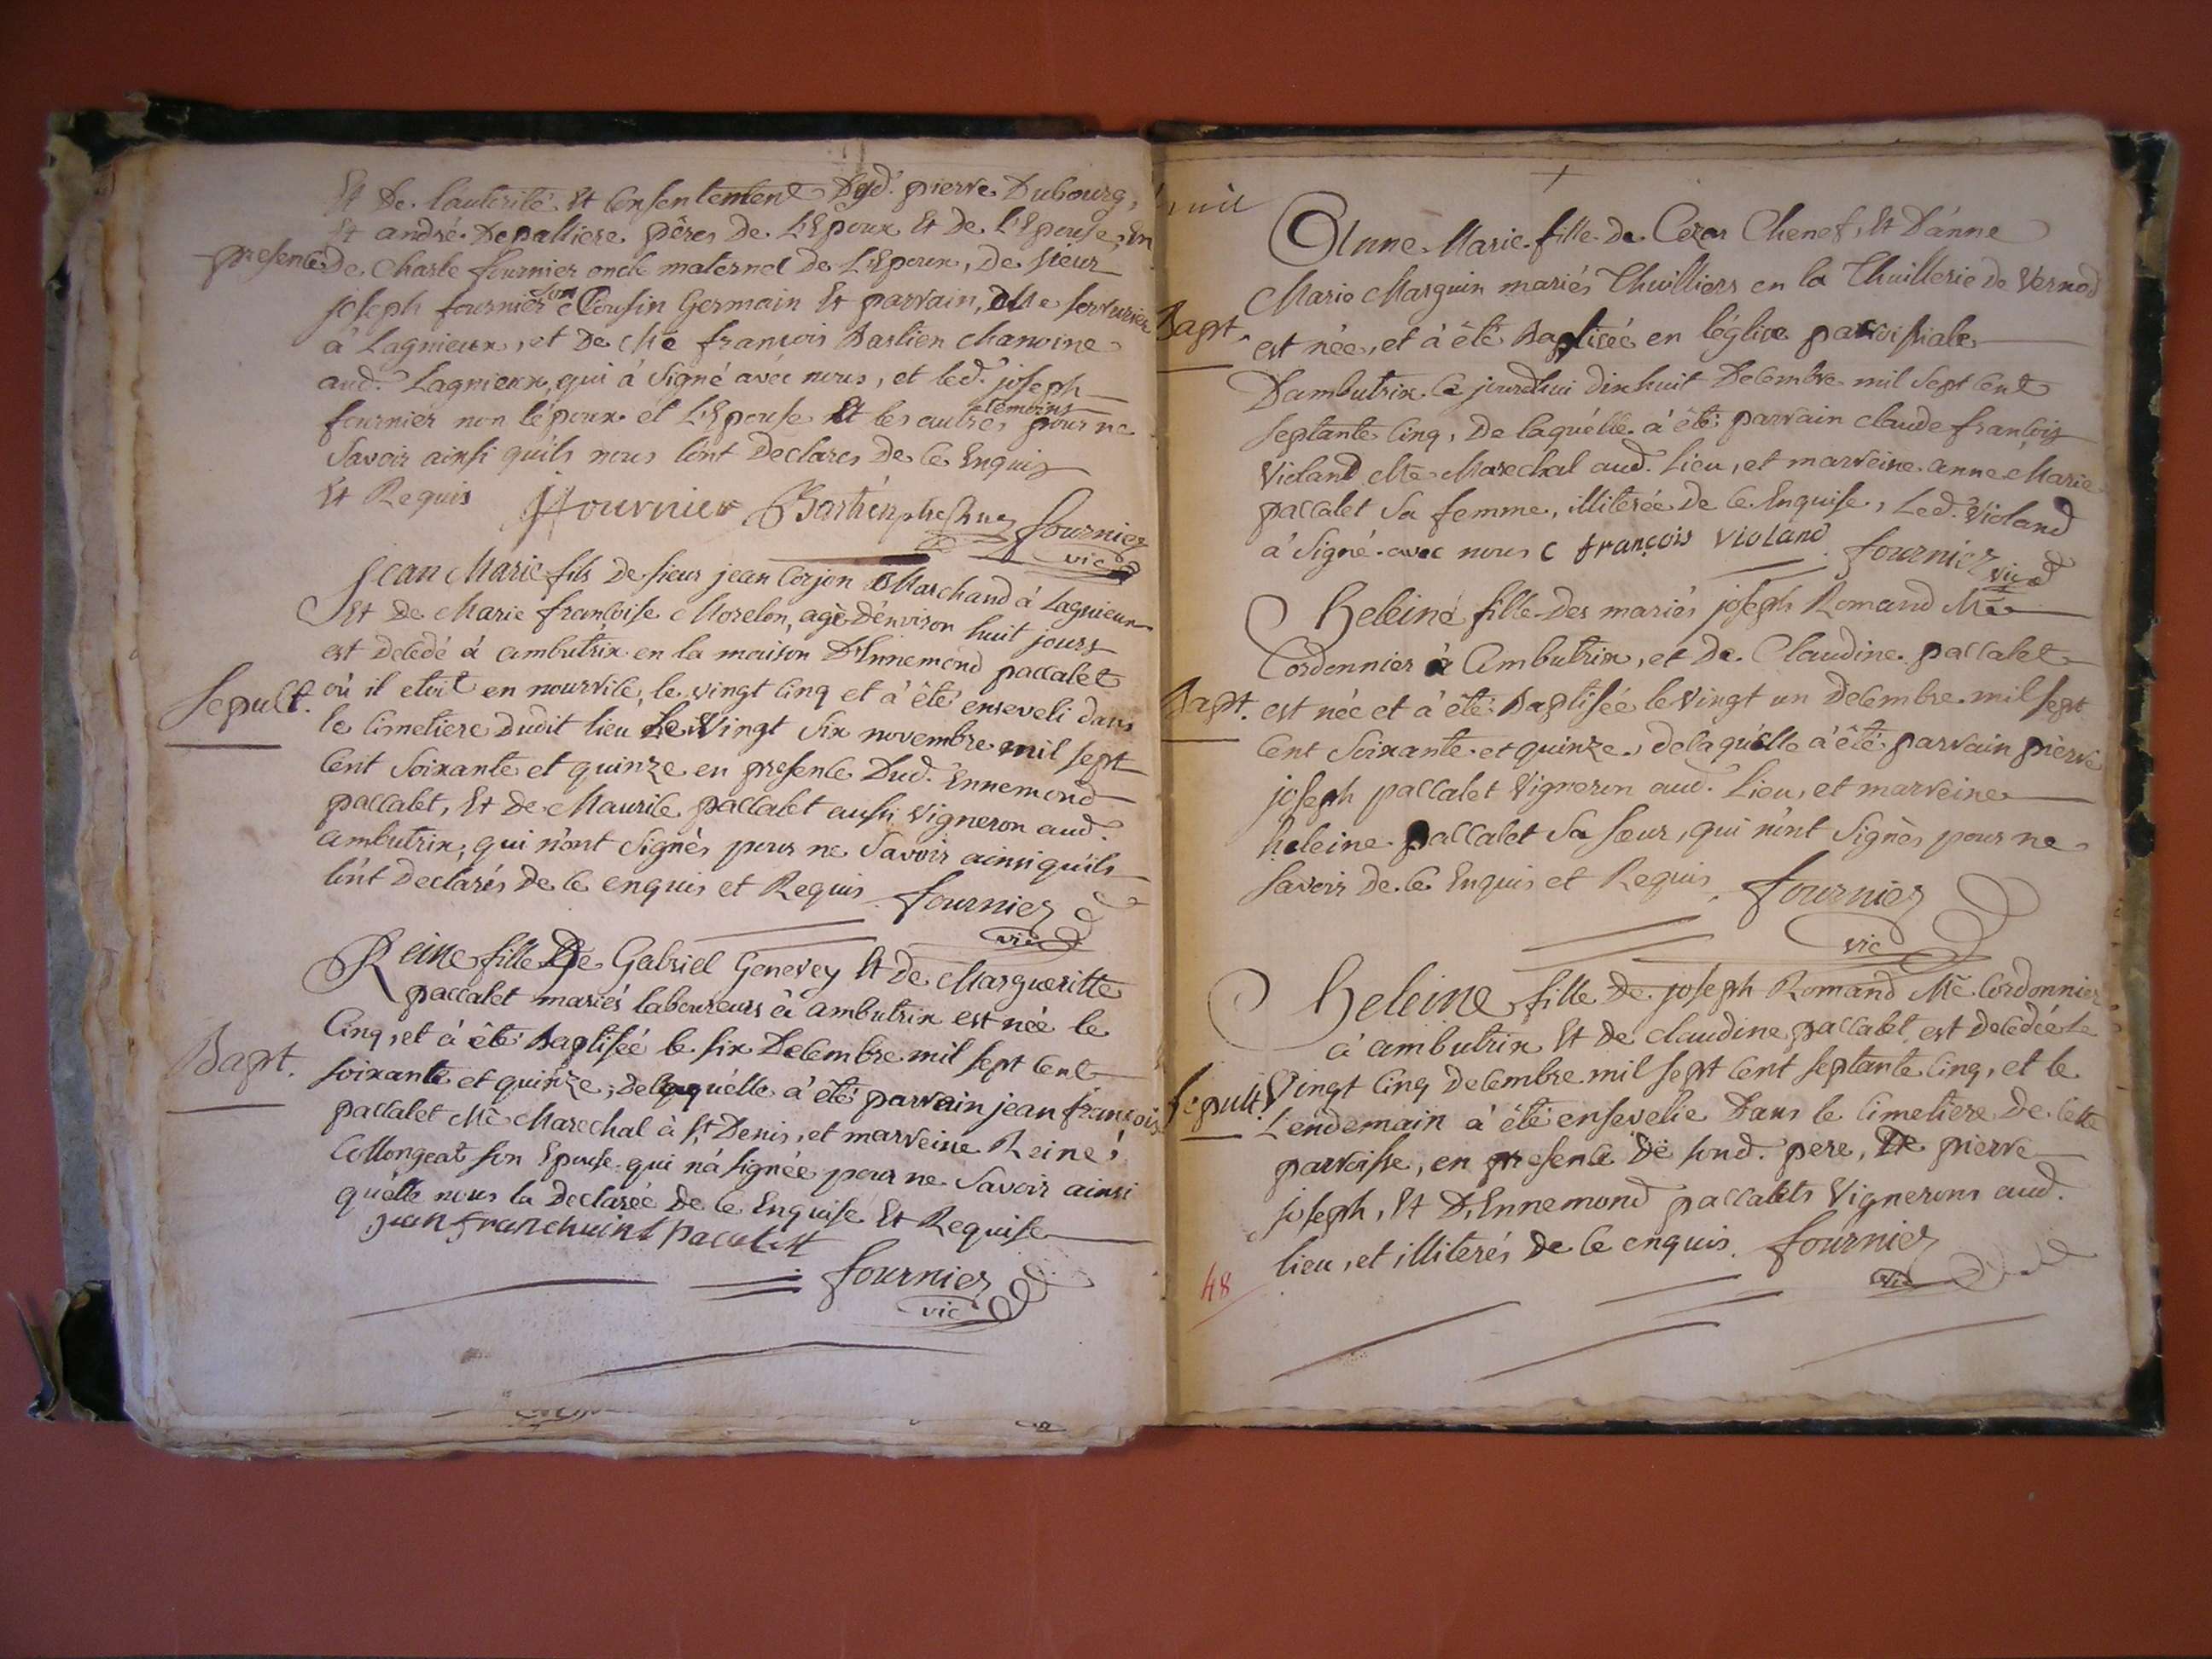 Et De. l'autorité Et Consentement Desd. pierre Dubourg,
Et andré Depalliere pères De L'Epoux Et de L'Epouse, En
presence De Charle fournier oncle maternel De L'Epoux, De sieur
joseph fournier son Cousin Germain Et parrain, Me serrurier
à Lagnieux, et De Me françois Bastien chanoine
aud. Lagnieux, qui à Signé avéc nous, et led. joseph
fournier non l'époux et L'Epouse Et les autres temoins pour ne
Savoir ainsi qu'ils nous l'ont Declarés De Ce Enquis
Et Requis Jfournier Bastien ptre Chne fournier
vic
Jean Marie fils De sieur jean Corjon Marchand à Lagnieux
Et De Marie françoise Morelon, agé D'environ huit jours
est Decedé à ambutrix en la maison D'Ennemond paccalet
Sepult.
où il etoit en nourrice, le vingt Cinq et à été enseveli dans
le Cimetiere Dudit lieu Le Vingt Six novembre mil sept
Cent Soixante et quinze en presence Dud. Ennemond
paccalet, Et De Maurice paccalet aussi Vigneron aud.
ambutrix; qui n'ont Signés pour ne Savoir ainsi qu'ils
l'ont Declarés De Ce enquis et Requis fournier
vic
Reine fille De Gabriel Genevey Et De Margueritte
paccalet mariés laboureurs à ambutrix est née le
Cinq, et à été Baptisée le six Decembre mil sept Cent
Bapt.
soixante et quinze; De laquélle à été parrain jean françois
paccalet Me Marechal à St Denis, et marreine Reine
Collongeat son Epouse qui n'à signée pour ne Savoir ainsi
qu'elle nous la Declarée De Ce Enquise Et Requise
jean franchuint pacalet
fournier
vic
Anne Marie fille De Cezar Chenef, Et D'anne
Marie Marguin mariés Thuilliers en la Thuillerie de Vernod
Bapt.
est née, et à été Baptisée en l'église parroissiale
D'ambutrix Ce jourdhui dixhuit Decembre mil Sept Cent
Septante Cinq, De laquélle à été parrain claude françois
Violand Me Marechal aud. Lieu, et marreine anne Marie
paccalet Sa femme, illiterée De Ce Enquise, Led. Violand
à Signé avec nous C françois violand fournier vic
heleine fille Des mariés joseph Romand Me
Cordonnier à Ambutrix, et De Claudine paccalet
Bapt.
est née et à été Baptisée le Vingt un Decembre mil sept
Cent Soixante et quinze, de laquélle à été parrain pierre
joseph paccalet Vigneron aud. Lieu, et marreine
heleine paccalet Sa sœur, qui n'ont Signés pour ne
Savoir De Ce Enquis et Requis, fournier
vic
heleine fille De joseph Romand Me Cordonnier
à ambutrix Et De Claudine paccalet est decédée le
Sepult.
Vingt Cinq Decembre mil sept Cent Septante Cinq, et le
Lendemain à été ensevelie Dans le Cimetiere De Cette
parroisse, en presence De sond. pere, De pierre
joseph, Et D'Ennemond paccalets Vignerons aud.
lieu, et illiterés De Ce enquis. fournier
vic
48